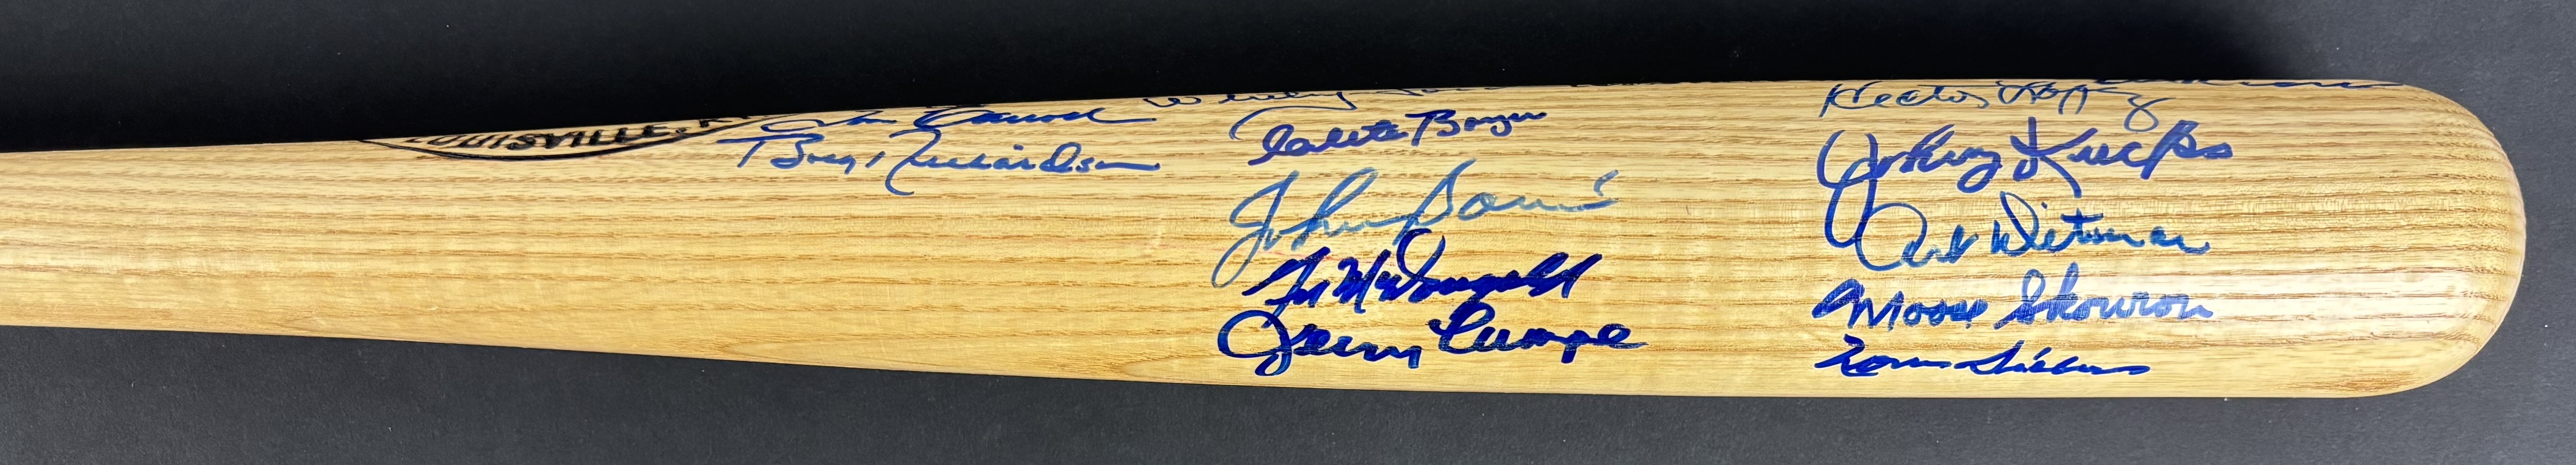 LOUISVILLE, K
Bobby Richardson
Whitey
Clete Boyer
John
Gil McDougald
Jerry Lumpe
Hector Lopez
Johnny Kucks
Art Ditmar
Moose Skowron
Norm Siebern